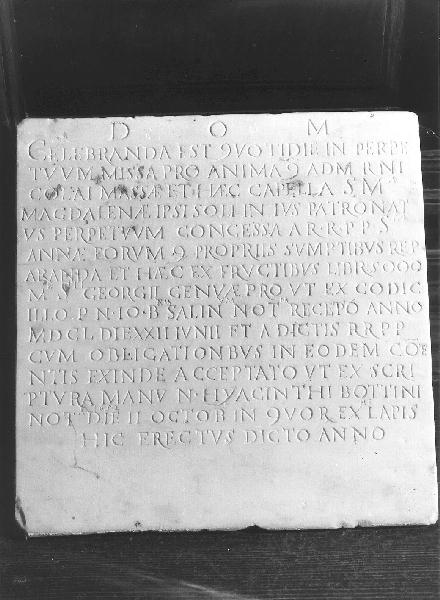 D O M
CELEBRANDA EST 9VOTIDIE IN PERPE
TVVM MISSA PRO ANIMA 9 ADM R NI
COLAI MASSÆ ET HÆC CAPELLA S M
MAGDALENÆ IPSI SOLI IN IVS PATRONAT
VS PERPETVVM CONCESSA A R·R·P P S
ANNÆ EORVM 9 PROPRIIS SVMPTIBVS REP
ARANDA ET HÆC EX FRVCTIBVS LIBR 5000
M S GEORGII GENVÆ PRO VT EX CODIC
ILLO P N·IO·B SALIN NOT RECEPTO ANNO
MDCL DIE XXII IVNII ET A DICTIS R R P P
CVM OBLIGATIONIBVS IN EODEM CÕE
NTIS EXINDE ACCEPTATO VT EX SCRI
PTVRA MANV N·HYACINTHI BOTTINI
NOT DIE II OCTOB IN 9VOR EX LAPIS
HIC ERECTVS DICTO ANNO